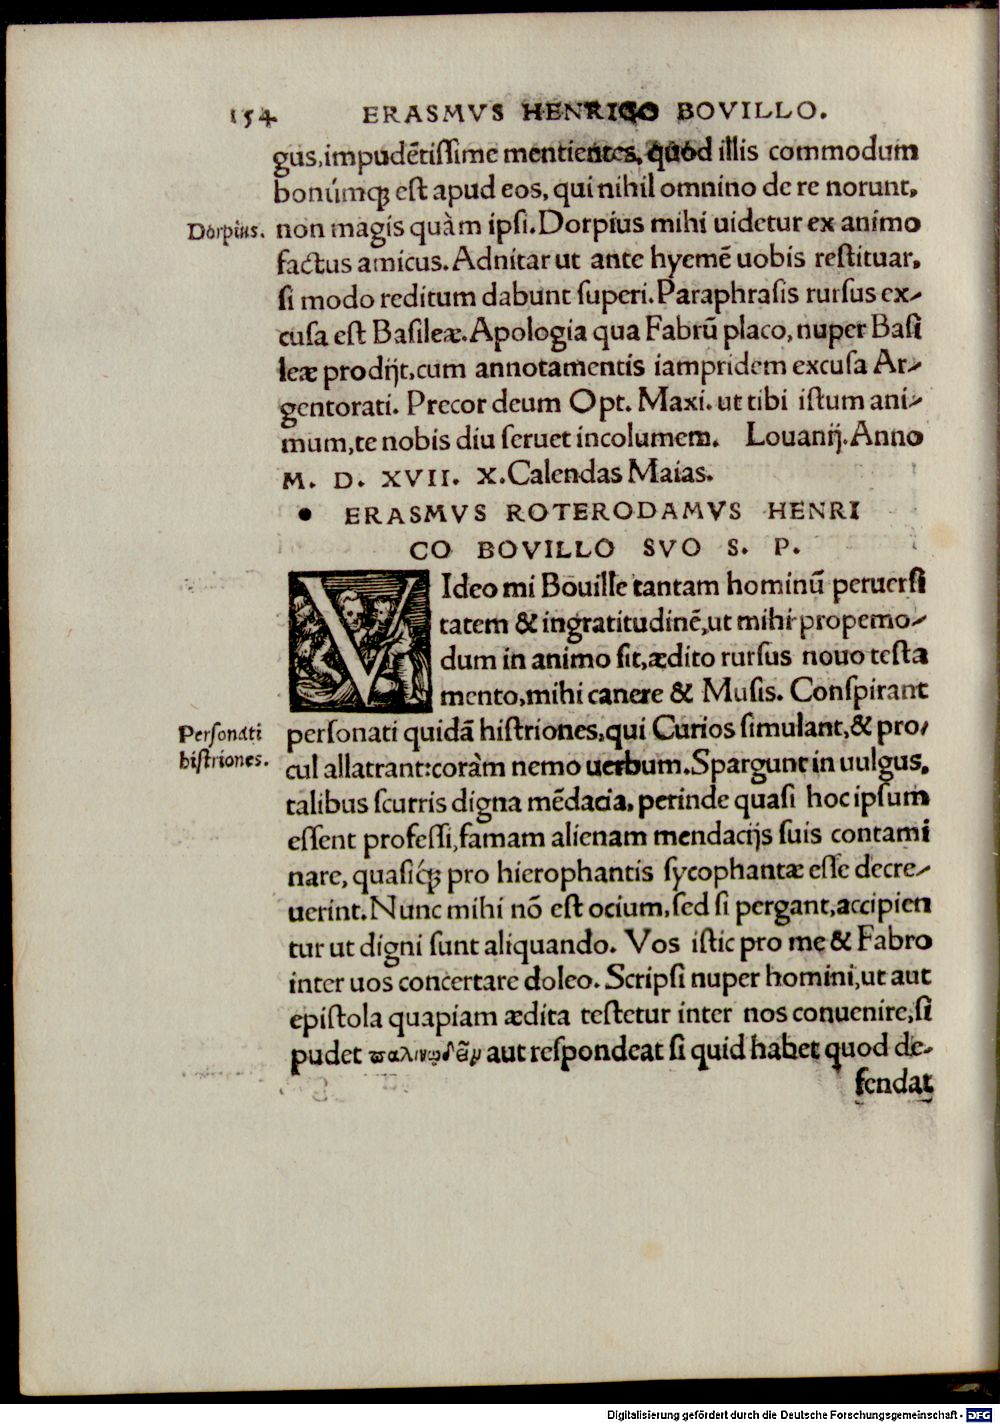 154 ERASMVS HENRICO BOVILLO.
gus,impudẽtissime mentientes, quod illis commodum
bonúmq; est apud eos, qui nihil omnino de re norunt,
Dorpius. non magis quàm ipsi. Dorpius mihi uidetur ex animo
factus amicus. Adnitar ut ante hyemẽ uobis restituar,
si modo reditum dabunt superi. Paraphrasis rursus ex-
cusa est Basileæ. Apologia qua Fabrũ placo, nuper Basi
leæ prodijt, cum annotamentis iampridem excusa Ar-
gentorati. Precor deum Opt. Maxi. ut tibi istum ani-
mum, te nobis diu seruet incolumem. Louanij. Anno
M. D. XVII. X. Calendas Maias.
• ERASMVS ROTERODAMVS HENRI
CO BOVILLO SVO S. P.
VIdeo mi Bouille tantam hominũ peruersi
tatem & ingratitudinẽ, ut mihi propemo-
dum in animo sit, ædito rursus nouo testa
mento, mihi canere & Musis. Conspirant
Personati personati quidã histriones, qui Curios simulant, & pro-
histriones. cul allatrant: coràm nemo uerbum. Spargunt in uulgus,
talibus scurris digna mẽdacia, perinde quasi hoc ipsum
essent professi, famam alienam mendacijs suis contami
nare, quasíq; pro hierophantis sycophantæ esse decre-
uerint. Nunc mihi nõ est ocium, sed si pergant, accipien
tur ut digni sunt aliquando. Vos istic pro me & Fabro
inter uos concertare doleo. Scripsi nuper homini, ut aut
epistola quapiam ædita testetur inter nos conuenire, si
pudet παλινῳδεῖν aut respondeat si quid habet quod de-
fendat
Digitalisierung gefördert durch die Deutsche Forschungsgemeinschaft - DFG